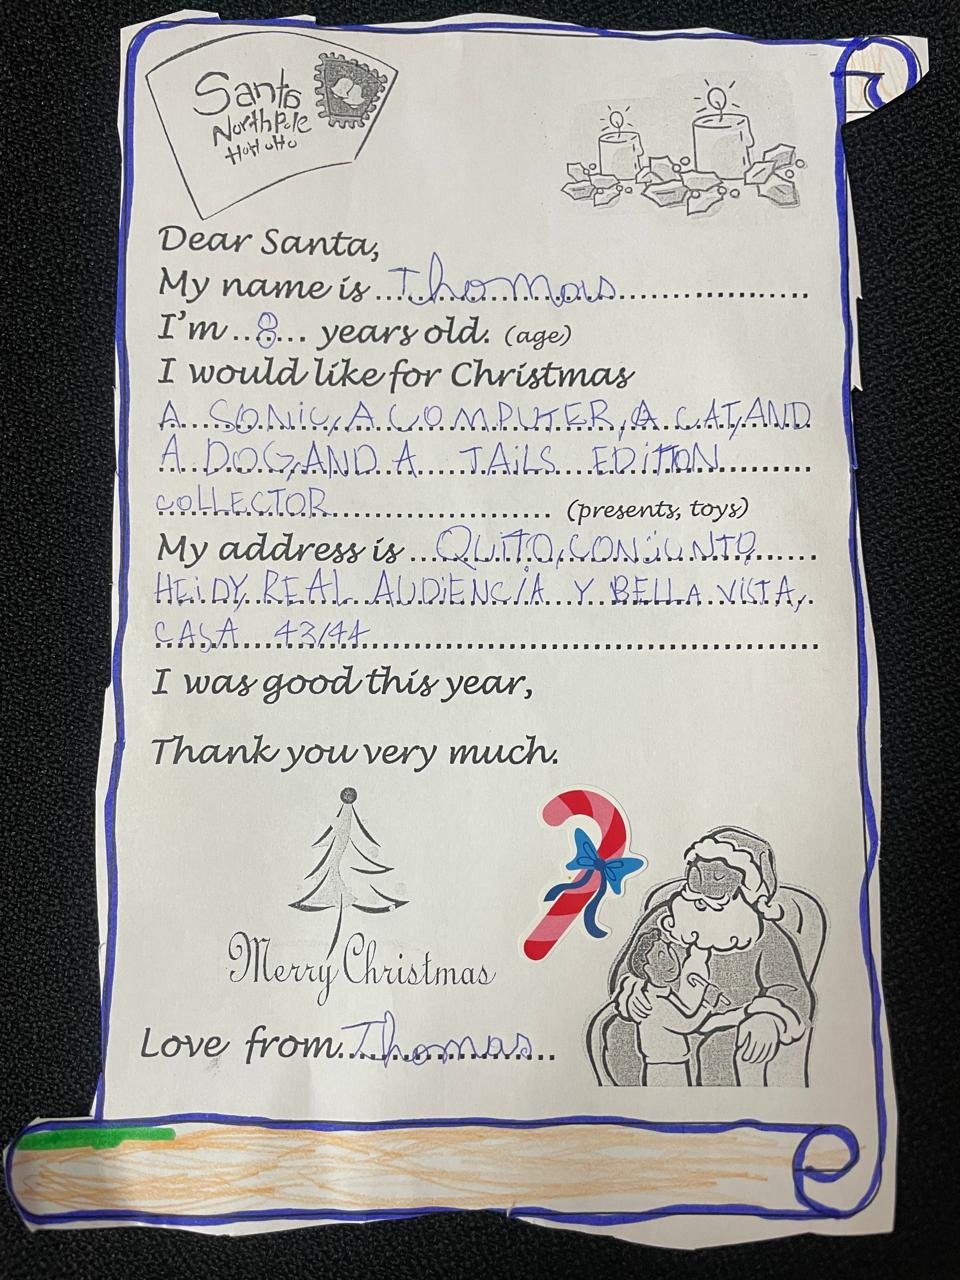 Santa
North Pole
Ho Ho Ho
Dear Santa,
My name is ...Thomas...................
I'm ..8... years old. (age)
I would like for Christmas
A SONIC, A COMPUTER, A CAT, AND
A DOG, AND A TAILS EDITION
COLLECTOR........................ (presents, toys)
My address is ...QUITO, CONJUNTO......
HEIDY, REAL AUDIENCIA Y BELLA VISTA,
CASA 43/44..........................................
I was good this year,
Thank you very much.
Merry Christmas
Love from...Thomas.....